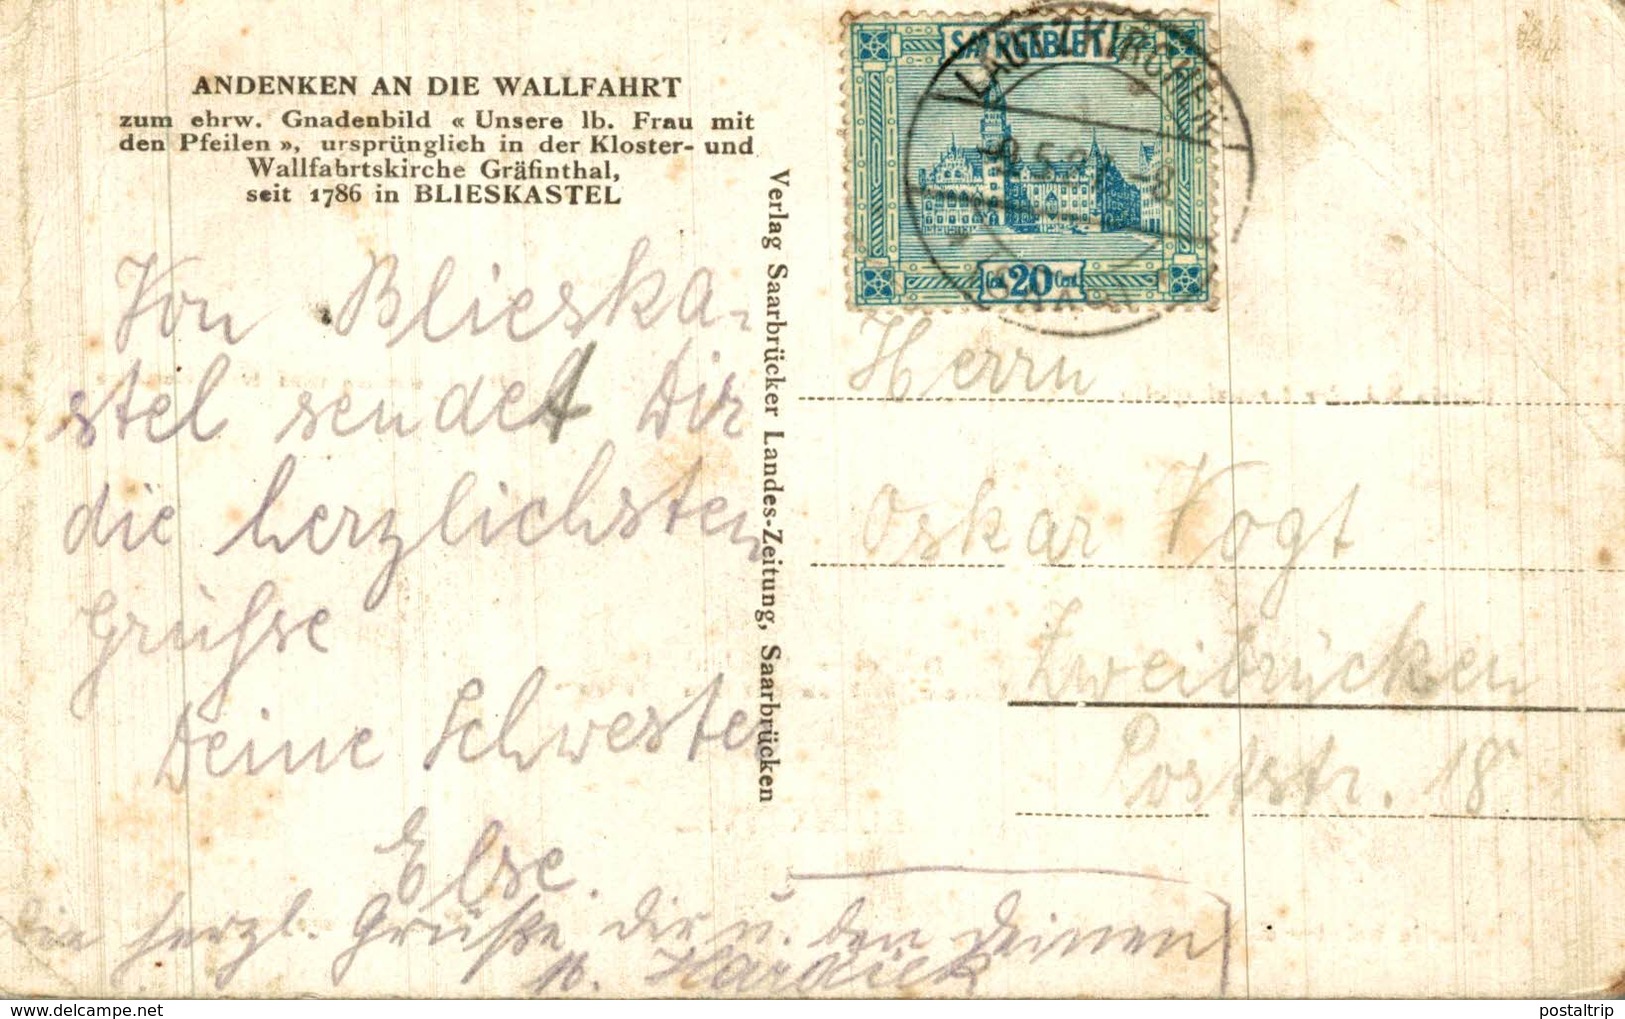 ANDENKEN AN DIE WALLFAHRT
zum ehrw. Gnadenbild « Unsere lb. Frau mit
den Pfeilen », ursprünglich in der Kloster- und
Wallfahrtskirche Gräfinthal,
seit 1786 in BLIESKASTEL
Von Blieska-
stel sendet Dir
die herzlichsten
Grühse
Deine Schwester
Else.
Die herzl. Grüße Dir u. den Deinen
Verlag Saarbrücker Landes-Zeitung, Saarbrücken
SAARGEBIET
Cent. 20 Cent.
LAUTZKIRCHEN
(SAAR)
Herrn
Oskar Vogt
Zweibrücken
Poststr. 18
delcampe.net
postaltrip